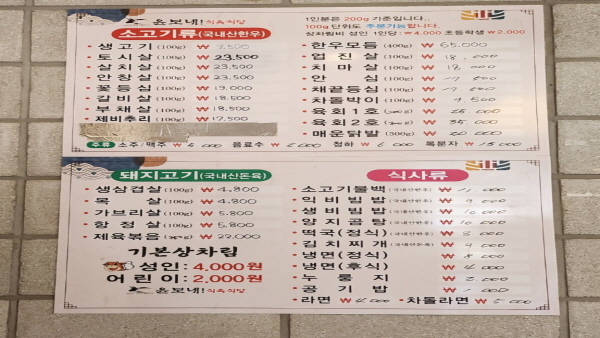 윤보네! 식육식당
소고기류(국내산한우)
1인분은 200g 기준입니다..
100g 단위도 추문가능합니다.
상차림비 성인 1인당 : ₩4,000 초등학생 ₩2,000
• 생고기 (100g) ₩ 9,500
• 토시살 (100g) ₩ 23,500
• 살치살 (100g) ₩ 23,500
• 안창살 (100g) ₩ 23,500
• 꽃등심 (100g) ₩ 19,000
• 갈비살 (100g) ₩ 18,500
• 부채살 (100g) ₩ 18,500
• 제비추리 (100g) ₩ 17,500
• 한우모듬 (400g) ₩ 65,000
• 업진살 (100g) ₩ 18,000
• 치마살 (100g) ₩ 18,000
• 안심 (100g) ₩
• 채끝등심 (100g) ₩
• 차돌박이 (100g) ₩ 9,500
• 육회 1호 ₩ 25,000
• 육회 2호 ₩ 35,000
• 매운닭발 (300g) ₩ 20,000
주류 소주/맥주 ₩ 5,000 음료수 ₩ 2,000 청하 ₩ 6,000 복분자 ₩ 15,000
돼지고기(국내산돈육)
• 생삼겹살 (100g) ₩ 4,800
• 목살 (100g) ₩ 4,800
• 가브리살 (100g) ₩ 5,800
• 항정살 (100g) ₩ 5,800
• 제육볶음 ₩ 22,000
기본상차림
성인: 4,000원
어린이: 2,000원
윤보네! 식육식당
식사류
• 소고기불백 (국내산한우) ₩ 11,000
• 익비빔밥 (국내산한우) ₩ 9,000
• 생비빔밥 (국내산한우) ₩ 10,000
• 양지곰탕 (국내산한우) ₩ 10,000
• 떡국(정식) (국내산한우) ₩ 8,000
• 김치찌개 (국내산돈육) ₩ 9,000
• 냉면(정식) ₩ 8,000
• 냉면(후식) ₩ 4,000
• 누룽지 ₩ 2,000
• 공기밥 ₩ 1,000
• 라면 ₩ 4,000 • 차돌라면 ₩ 5,000